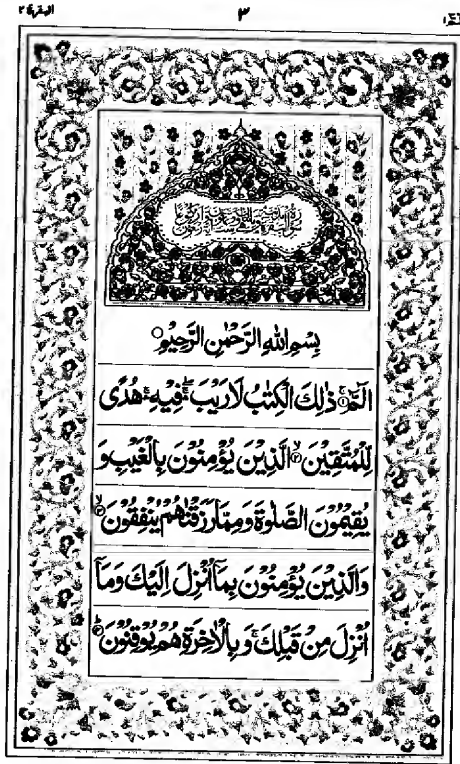 البقرة ٢
٣
الٓمّٓ ١
بِسْمِ اللّٰهِ الرَّحْمٰنِ الرَّحِيْمِ
الٓمّٓ ۚ۝۱ ذٰلِكَ الْكِتٰبُ لَا رَيْبَ ۛۖ فِيْهِ ۛۚ هُدًى
لِّلْمُتَّقِيْنَ ۙ۝۲ الَّذِيْنَ يُؤْمِنُوْنَ بِالْغَيْبِ وَ
يُقِيْمُوْنَ الصَّلٰوةَ وَ مِمَّا رَزَقْنٰهُمْ يُنْفِقُوْنَ ۙ۝۳
وَ الَّذِيْنَ يُؤْمِنُوْنَ بِمَاۤ اُنْزِلَ اِلَيْكَ وَ مَاۤ
اُنْزِلَ مِنْ قَبْلِكَ ۚ وَ بِالْاٰخِرَةِ هُمْ يُوْقِنُوْنَ ؕ۝۴